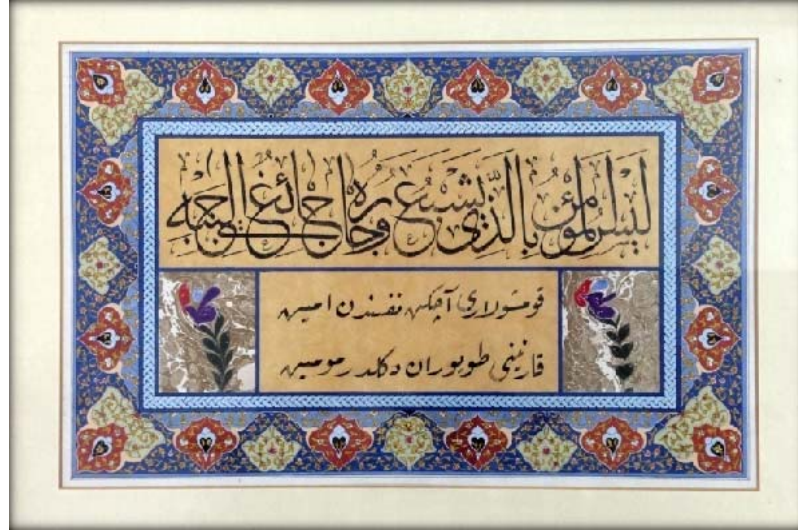 ليس المؤمن بالذي يشبع وجاره جائع إلى جنبه
قومشولاری آچكن نفسندن امین
قارنینی طویوران دكلدر مومین